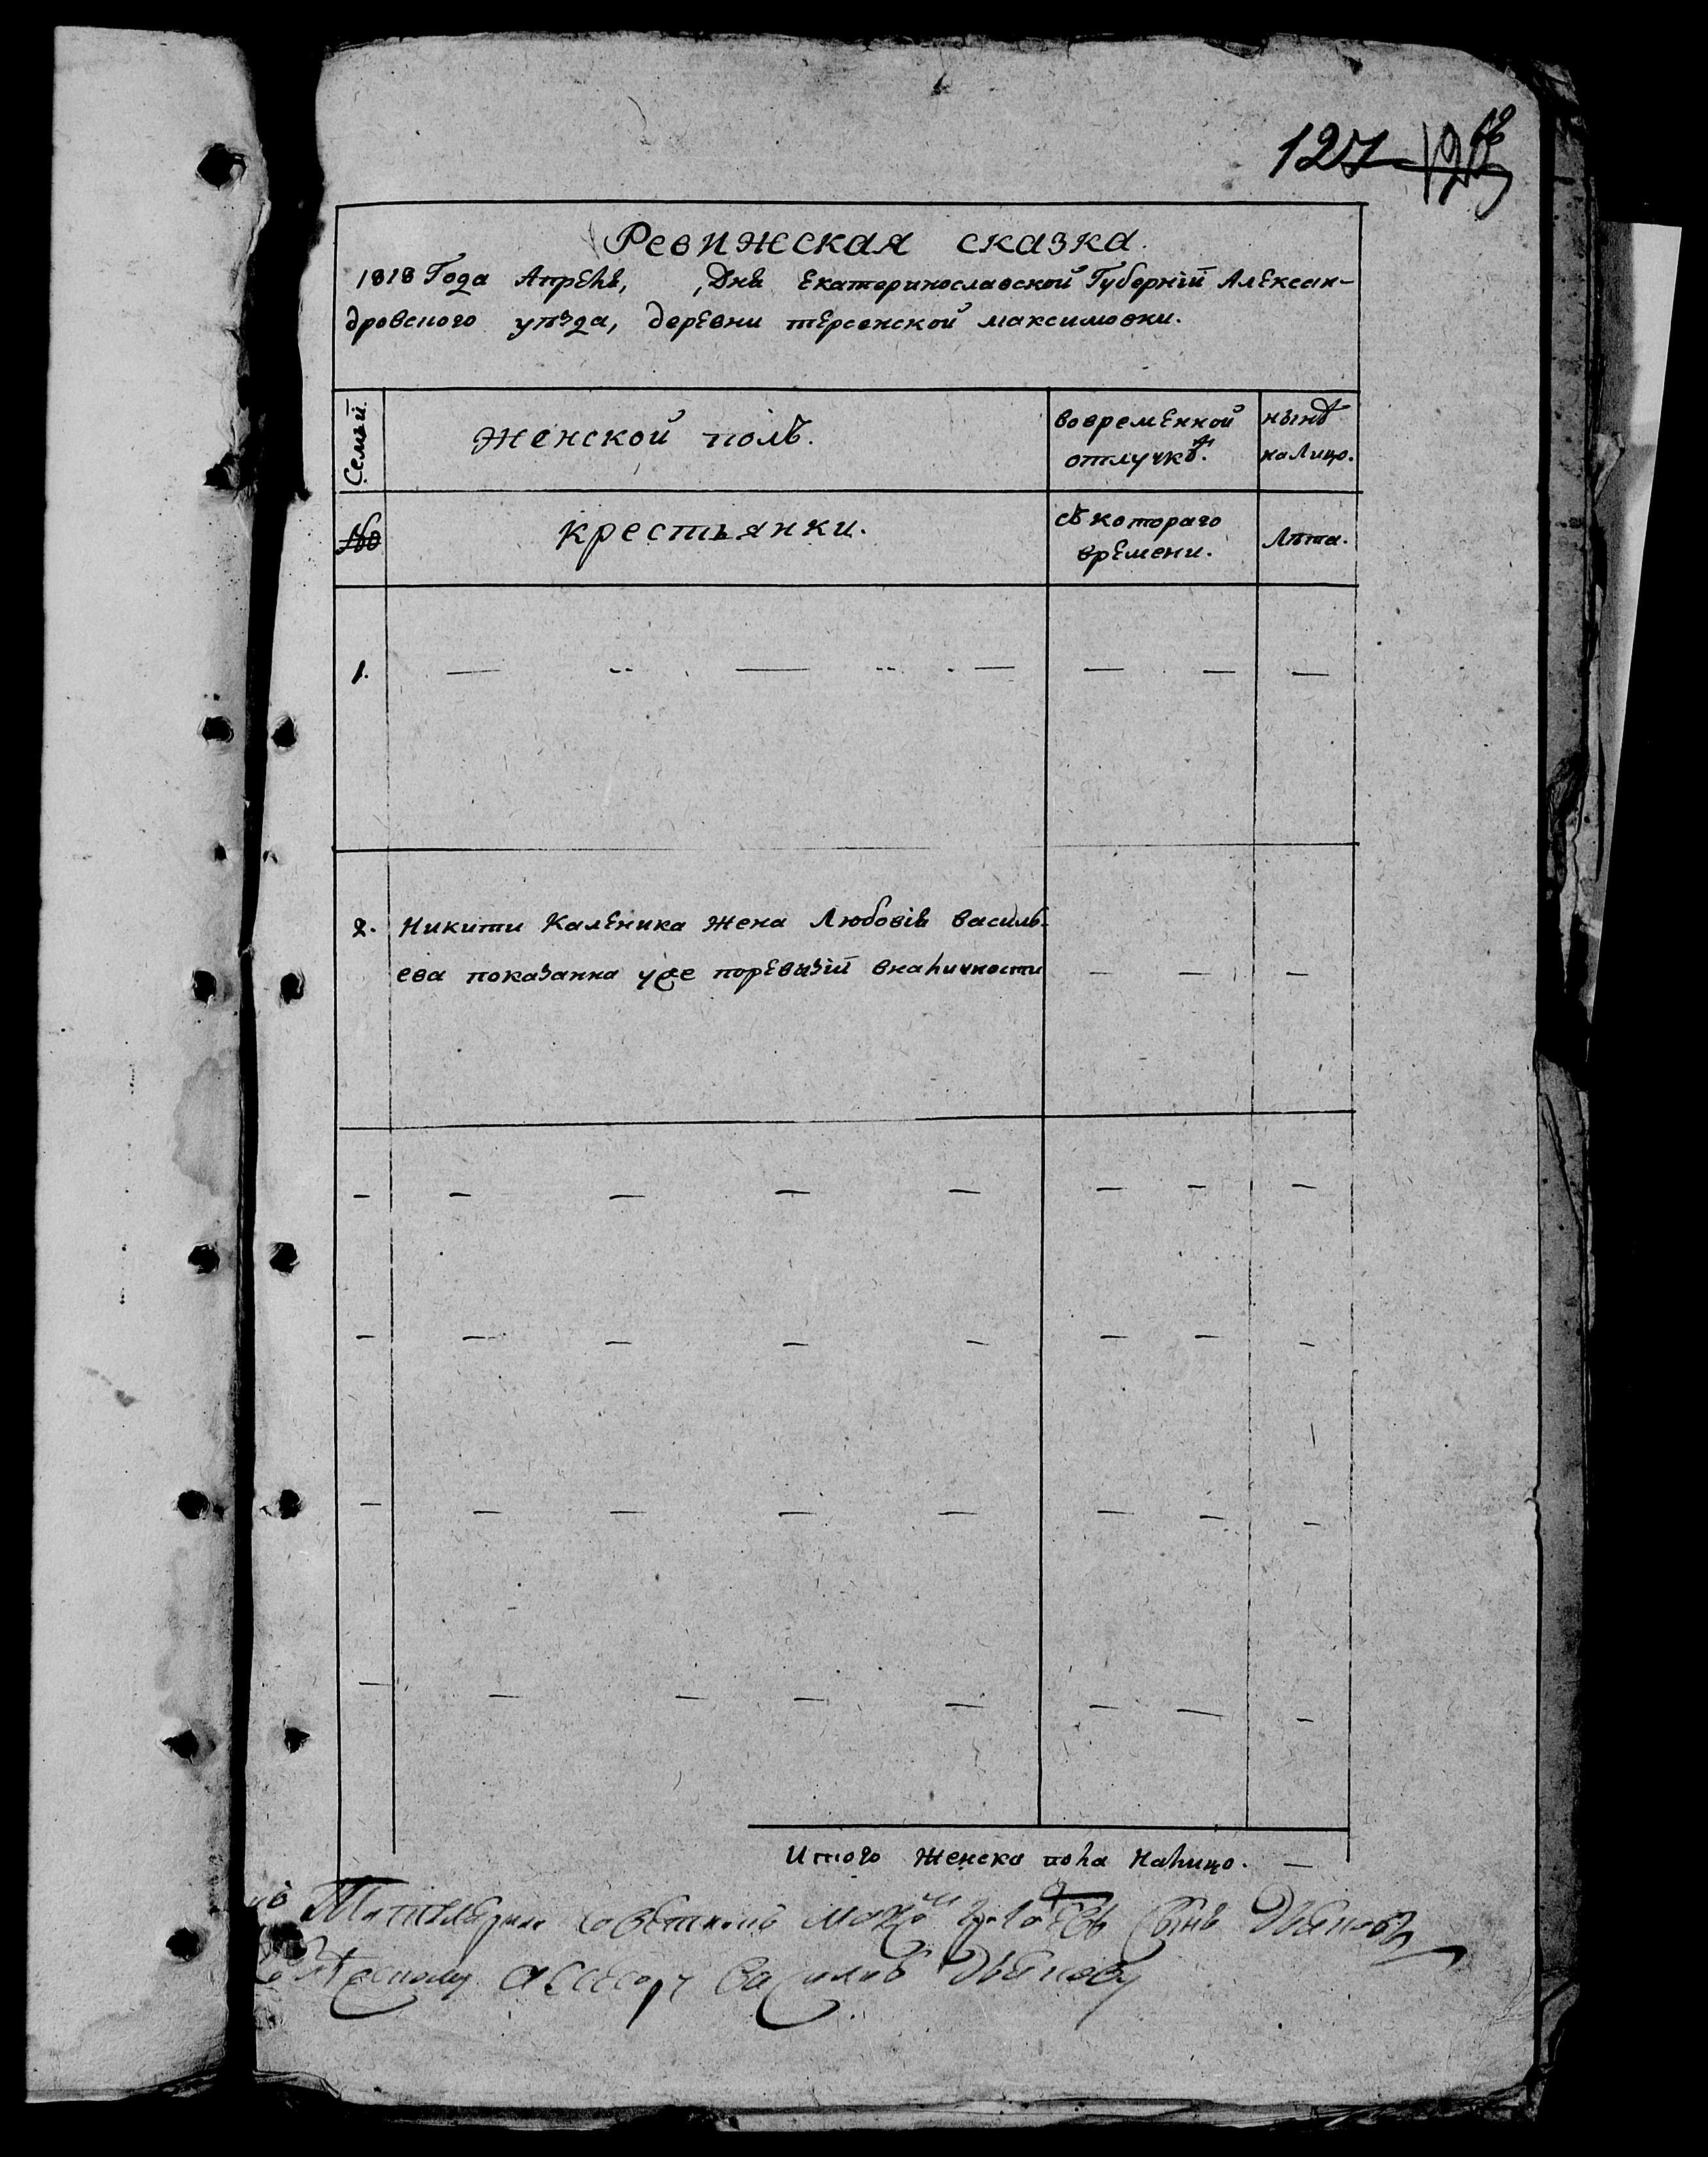 127
Ревижская сказка.
1818 Года Апрель, Дня Екатеринославской Губерніи Алексан-
дровского уѣзда, деревни терсенской максимовки.
Семьи.
Женской полъ.
вовременной
отлучкѣ.
нынѣ
налицо.
№
крестьянки.
съ котораго
времени.
лѣта.
1. — — — — — —
2. Никити Каленика жена Любовь василь-
ева показанна уже поревизіи вналичности — — —
— — — — — — — —
— — — — — — — —
— — — — — — — —
— — — — — — — —
Итого женска пола налицо. —
сынъ